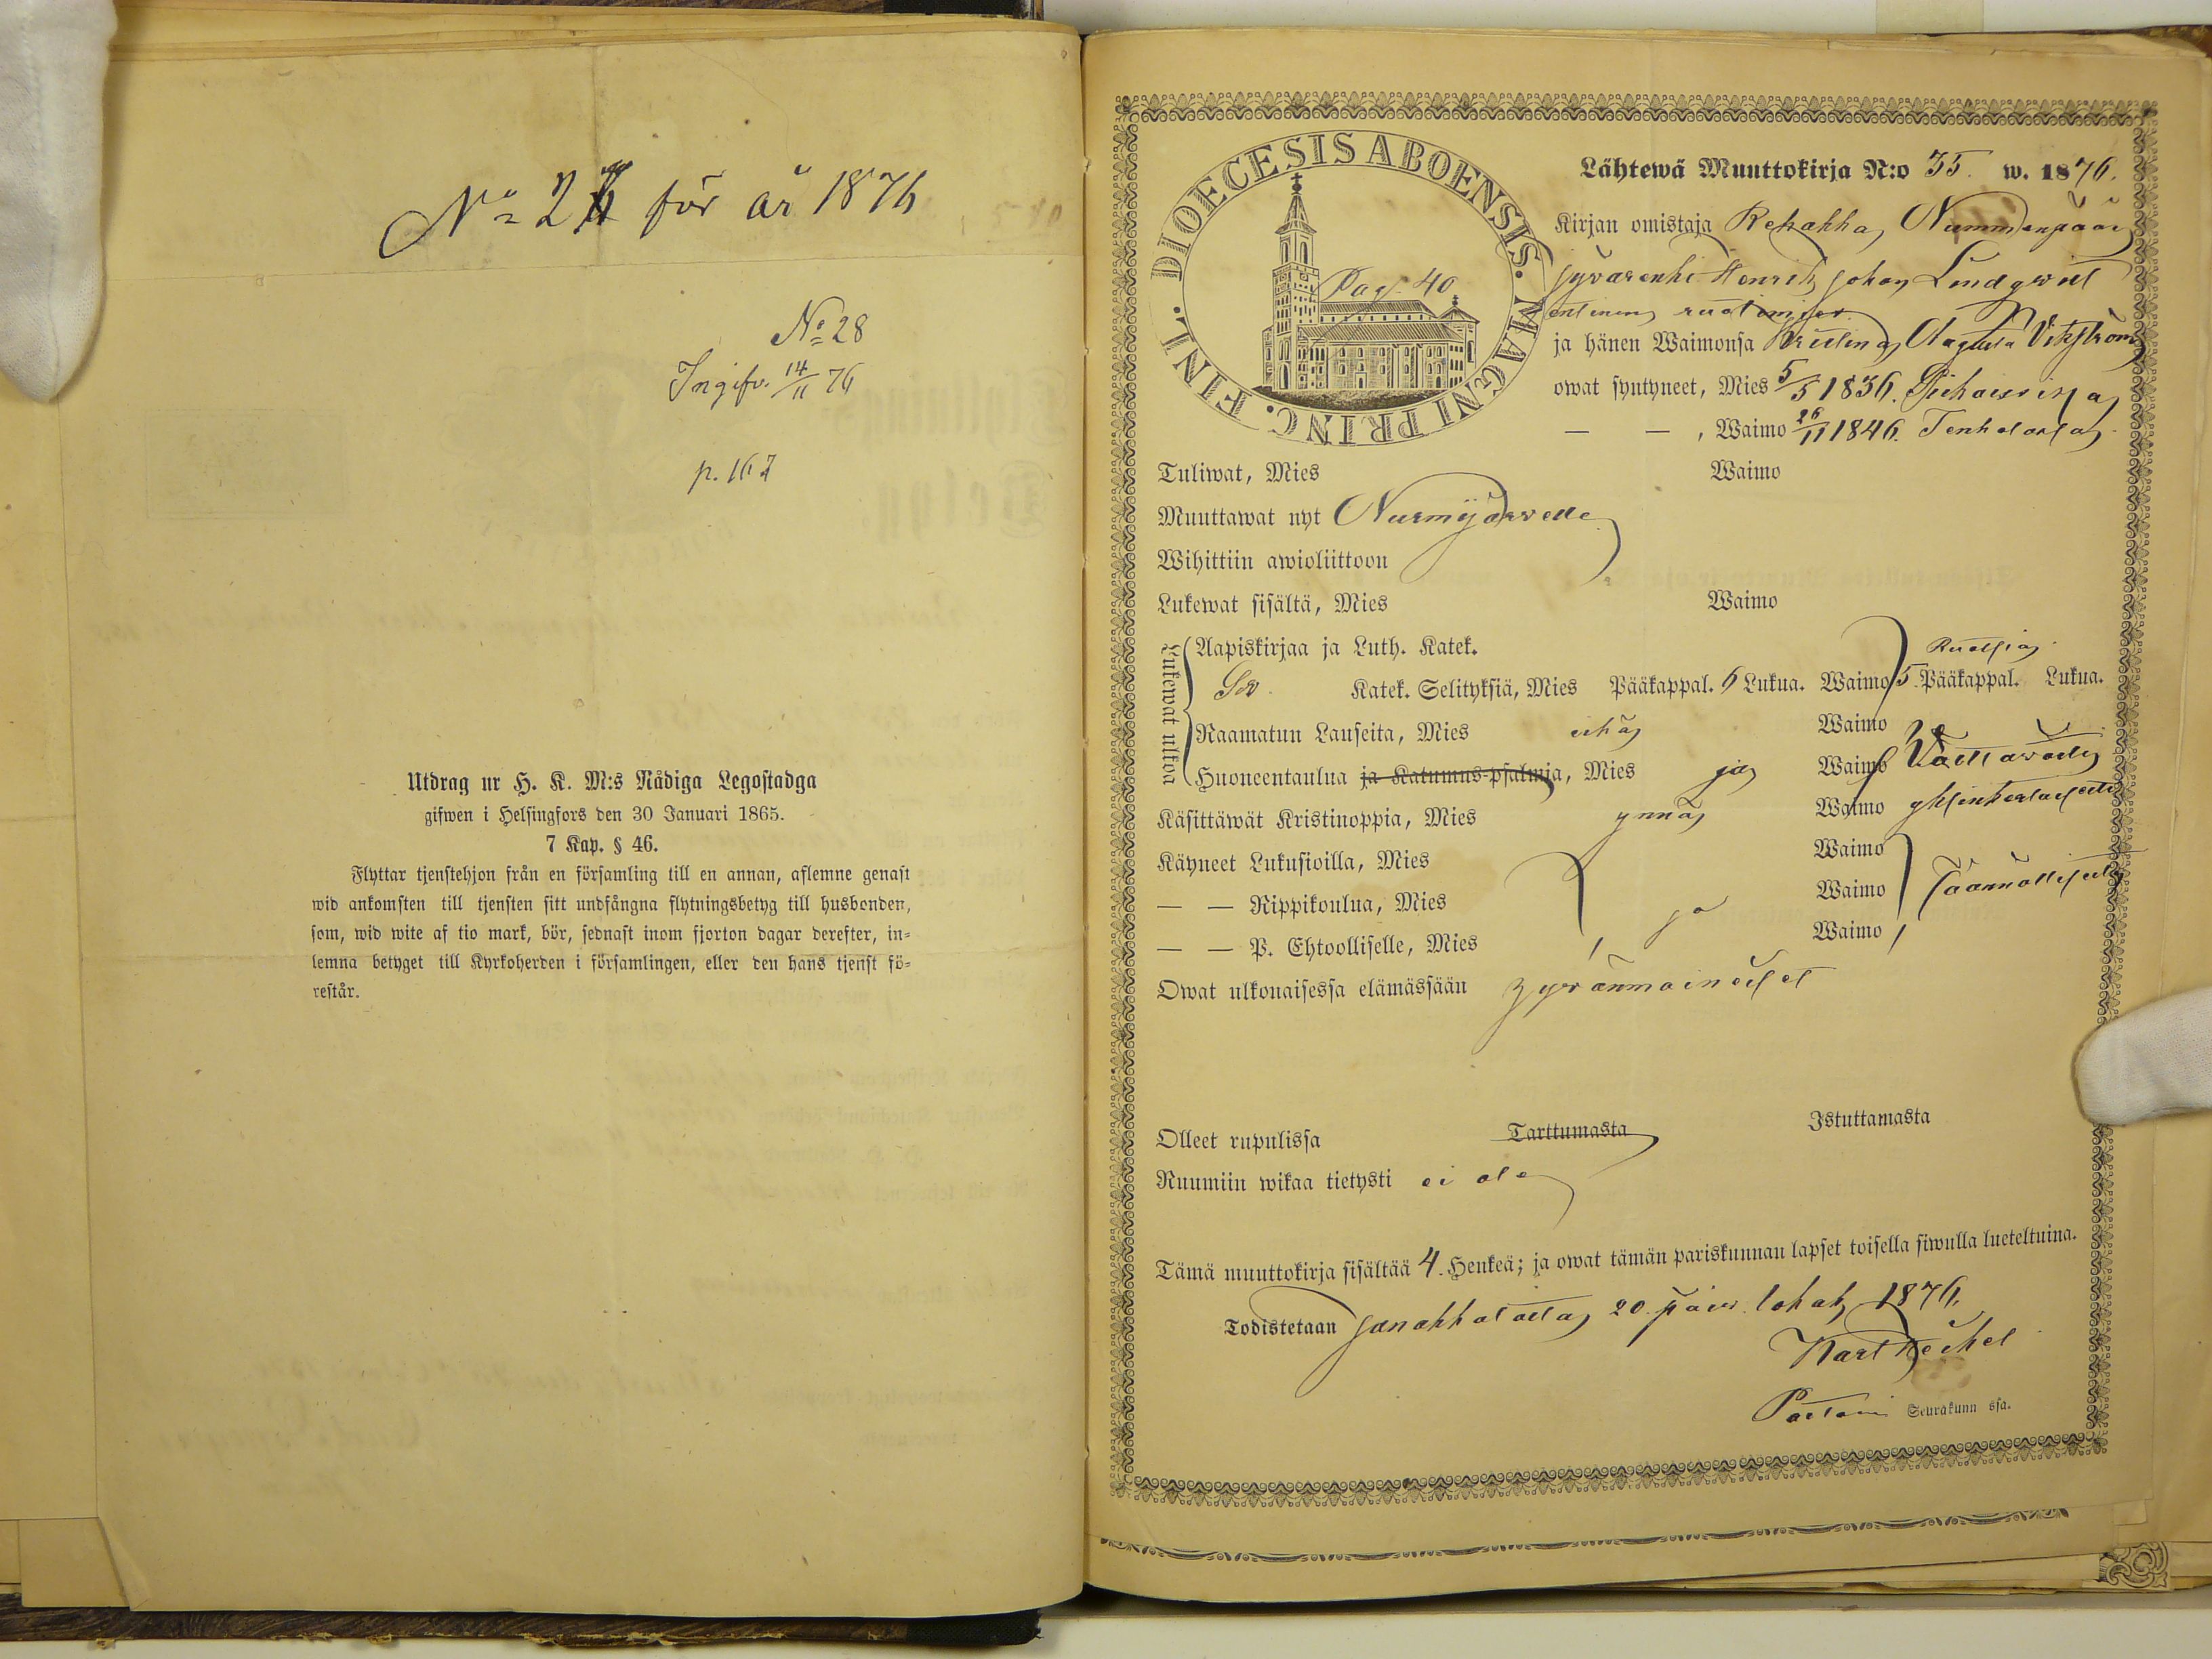 No 28 för år 1876
No 28
Ingifv. 14/11 76
p. 167
Utdrag ur H. K. M:s Nådiga Legostadga
gifwen i Helsingfors den 30 Januari 1865.
7 Kap. § 46.
Flyttar tjenstehjon från en församling till en annan, aflemne genast
wid ankomsten till tjensten sitt undfångna flytningsbetyg till husbonden,
som, wid wite af tio mark, bör, sednast inom fjorton dagar derefter, in-
lemna betyget till Kyrkoherden i församlingen, eller den hans tjenst fö-
restår.
DIOECESIS ABOENSIS. MAGNI PRINC. FINL.
Pag. 40
Lähtewä Muuttokirja N:o 35. w. 1876.
Kirjan omistaja Rehakka, Nummenpään
jyvärenki Henrik Johan Lindqvist
entinen
ja hänen Waimonsa Kristina Augusta Vikström
owat syntyneet, Mies 5/5 1836.
— — , Waimo 26/11 1846. Tenholasa
Tuliwat, Mies Waimo
Muuttawat nyt Nurmijärvelle
Wihittiin awioliittoon
Lukewat sisältä, Mies Waimo
Lukewat ulkoa
Aapiskirjaa ja Luth. Katek. Ruotsia
Sv. Katek. Selityksiä, Mies Pääkappal. 6 Lukua. Waimo 5 Pääkappal. Lukua.
Raamatun Lauseita, Mies eikä Waimo
Huoneentaulua ja Katumus-psalmja, Mies ja Waimo Välttävästi
Käsittäwät Kristinoppia, Mies ynnä Waimo yksinkertaisesti
Käyneet Lukusioilla, Mies Waimo
— — Rippikoulua, Mies ja Waimo säännöllisesti
— — P. Ehtoolliselle, Mies Waimo
Owat ulkonaisessa elämässään hyvänmaineiset
Olleet rupulissa Tarttumasta Istuttamasta
Ruumiin wikaa tietysti ei ole
Tämä muuttokirja sisältää 4. Henkeä; ja owat tämän pariskunnan lapset toisella siwulla lueteltuina.
Todistetaan Janakkalasta 20 päiv. lokak. 1876.
Pastori Seurakunn ssa.